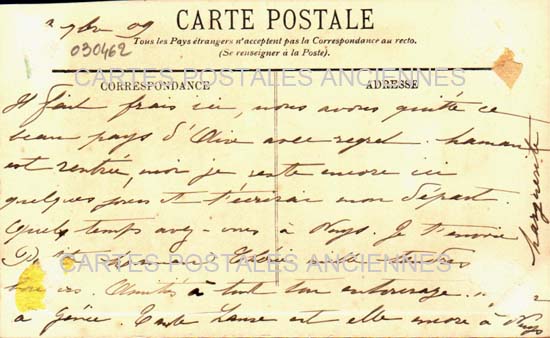 7bre 09
CARTE POSTALE
030462
Tous les Pays étrangers n'acceptent pas la Correspondance au recto.
(Se renseigner à la Poste).
CARTES POSTALES ANCIENNES
CORRESPONDANCE
ADRESSE
Il fait frais ici, nous avons quitté ce
beau pays d'Aire avec regret. Maman
est rentrée, moi je reste encore ici
quelques jours et t'écrirai mon départ.
Quel temps avez-vous à Nuys. Je t'envoie
CARTES POSTALES ANCIENNES
Amitiés à tout ton entourage
à Génie. Tante Laure est elle encore à Nuys
Marguerite